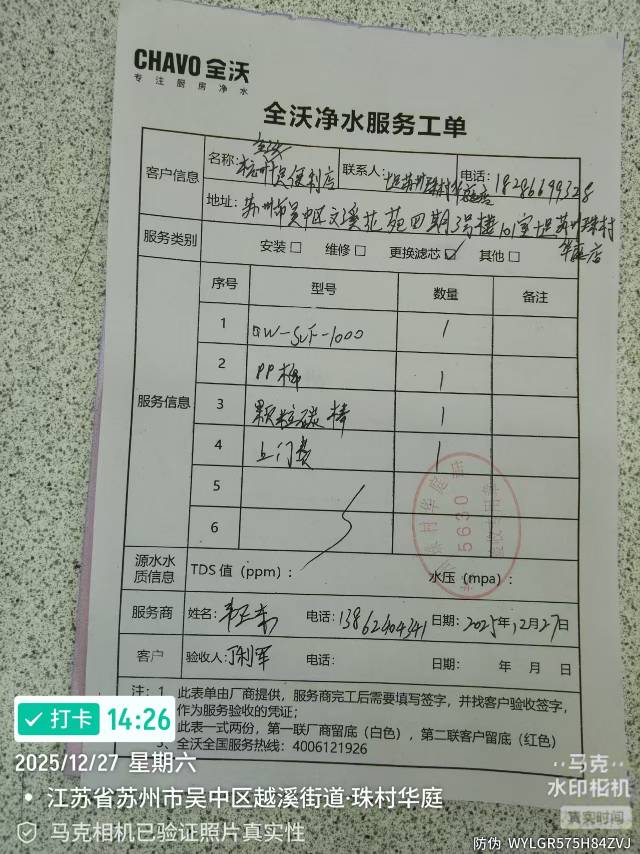 CHAVO 全沃
专注厨房净水
全沃净水服务工单
客户信息
名称: 杭州十足便利店
联系人: 十足苏州珠村华庭店
电话: 18286699328
地址: 苏州市吴中区文溪花苑四期3号楼101室十足苏州珠村华庭店
服务类别
安装 □ 维修 □ 更换滤芯 ☑ 其他 □
服务信息
序号 型号 数量 备注
1 QW-SUF-1000 1
2 PP棉 1
3 颗粒碳棒 1
4 上门费 1
5
6
珠村华庭店
5630
源水水质信息
TDS 值 (ppm): 水压 (mpa):
服务商 姓名: 电话: 13862404341 日期: 2025年12月27日
客户 验收人: 电话: 日期: 年 月 日
注: 1、此表单由厂商提供, 服务商完工后需要填写签字, 并找客户验收签字,
作为服务验收的凭证;
此表一式两份, 第一联厂商留底 (白色), 第二联客户留底 (红色)
3、全沃全国服务热线: 4006121926
打卡 14:26
2025/12/27 星期六
江苏省苏州市吴中区越溪街道·珠村华庭
马克相机已验证照片真实性
马克
水印相机
真实时间
防伪 WYLGR575H84ZVJ